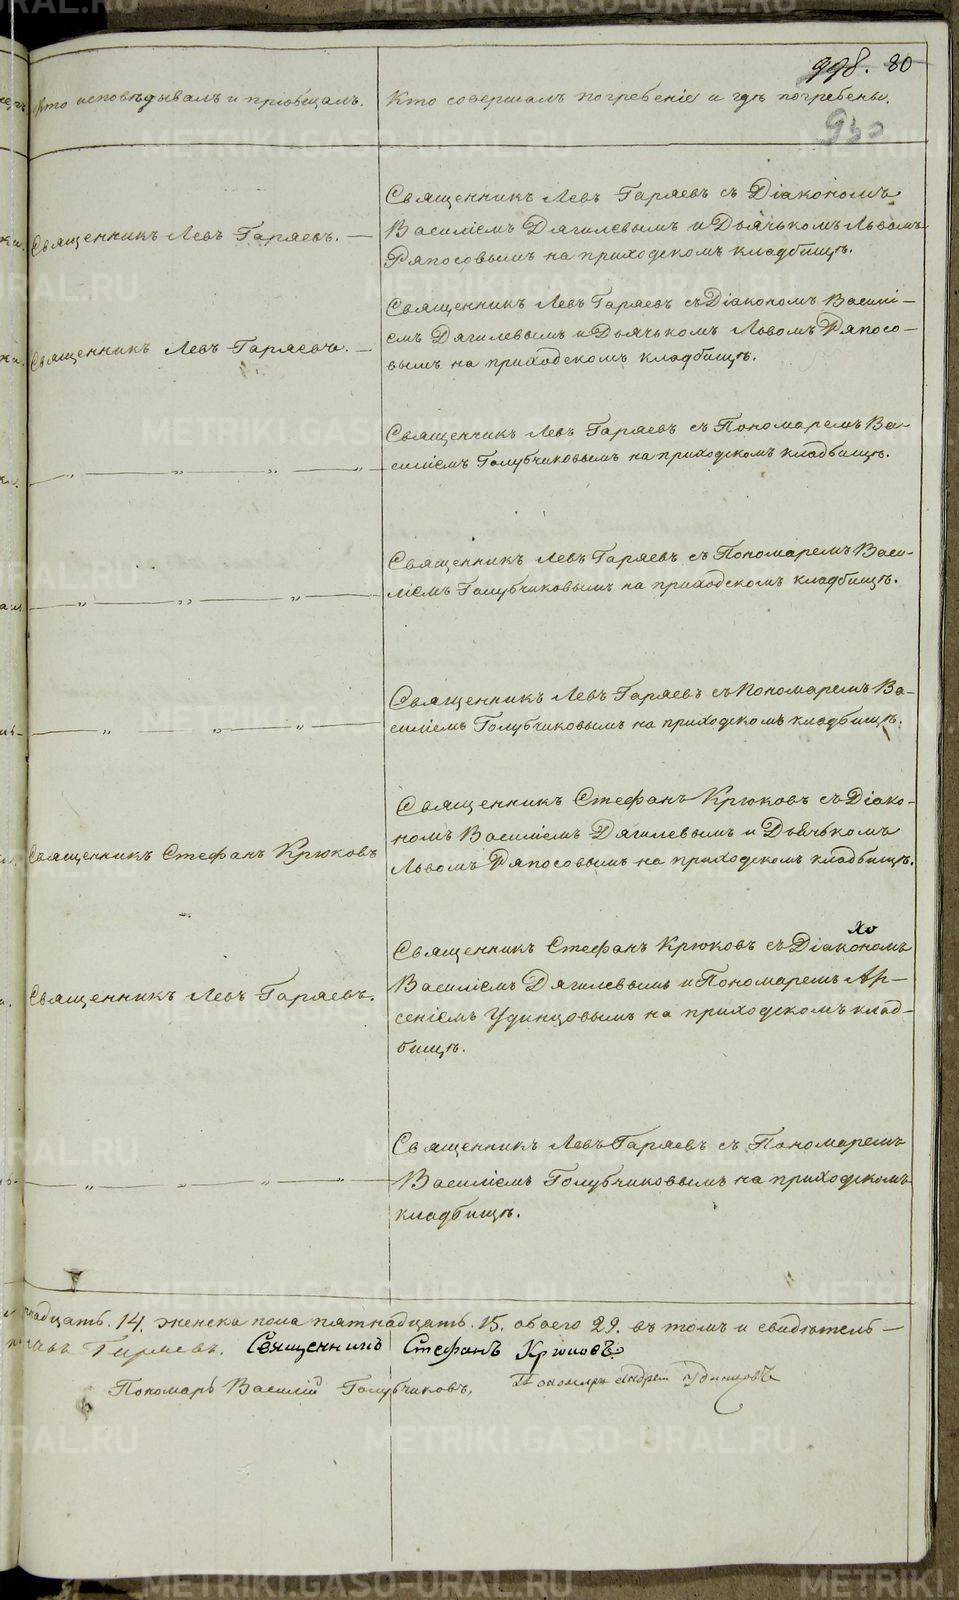 998. 80
Кто исповѣдывалъ и пріобщалъ.
Кто совершалъ погребеніе и гдѣ погребены.
930
Священникъ Левъ Гаряевъ. —
Священникъ Левъ Гаряевъ съ Діакономъ
Василіемъ Дягилевымъ и Дьячькомъ Львомъ
Ряпосовымъ на приходскомъ кладбищѣ.
Священникъ Левъ Гаряевъ. —
Священникъ Левъ Гаряевъ съ Діакономъ Василі-
емъ Дягилевымъ и Дьячькомъ Львомъ Ряпосо-
вымъ на приходскомъ кладбищѣ.
— „ — „ — „ — „ —
Священникъ Левъ Гаряевъ съ Пономаремъ Ва-
силіемъ Голубчиковымъ на приходскомъ кладбищѣ.
— „ — „ — „ —
Священникъ Левъ Гаряевъ съ Пономаремъ Васи-
ліемъ Голубчиковымъ на приходскомъ кладбищѣ.
— „ — „ — „ —
Священникъ Левъ Гаряевъ съ Пономаремъ Ва-
силіемъ Голубчиковымъ на приходскомъ кладбищѣ.
Священникъ Стефанъ Крюковъ
Священникъ Стефанъ Крюковъ съ Діако-
номъ Василіемъ Дягилевымъ и Дьячькомъ
Львомъ Ряпосовымъ на приходскомъ кладбищѣ.
Священникъ Левъ Гаряевъ.
Священникъ Стефанъ Крюковъ съ Діакономъ
Василіемъ Дягилевымъ и Пономаремъ Ар-
сеніемъ Удинцовымъ на приходскомъ клад-
бищѣ.
— „ — „ — „ — „ —
Священникъ Левъ Гаряевъ съ Пономаремъ
Василіемъ Голубчиковымъ на приходскомъ
кладбищѣ.
надцать. 14. женска пола пятнадцать. 15. обоего 29. въ томъ и свидѣтель-
Гаряевъ. Священникъ Стефанъ Крюковъ
Пономарь Василій Голубчиковъ, Пономарь Удинцовъ
METRIKI.GASO-URAL.RU